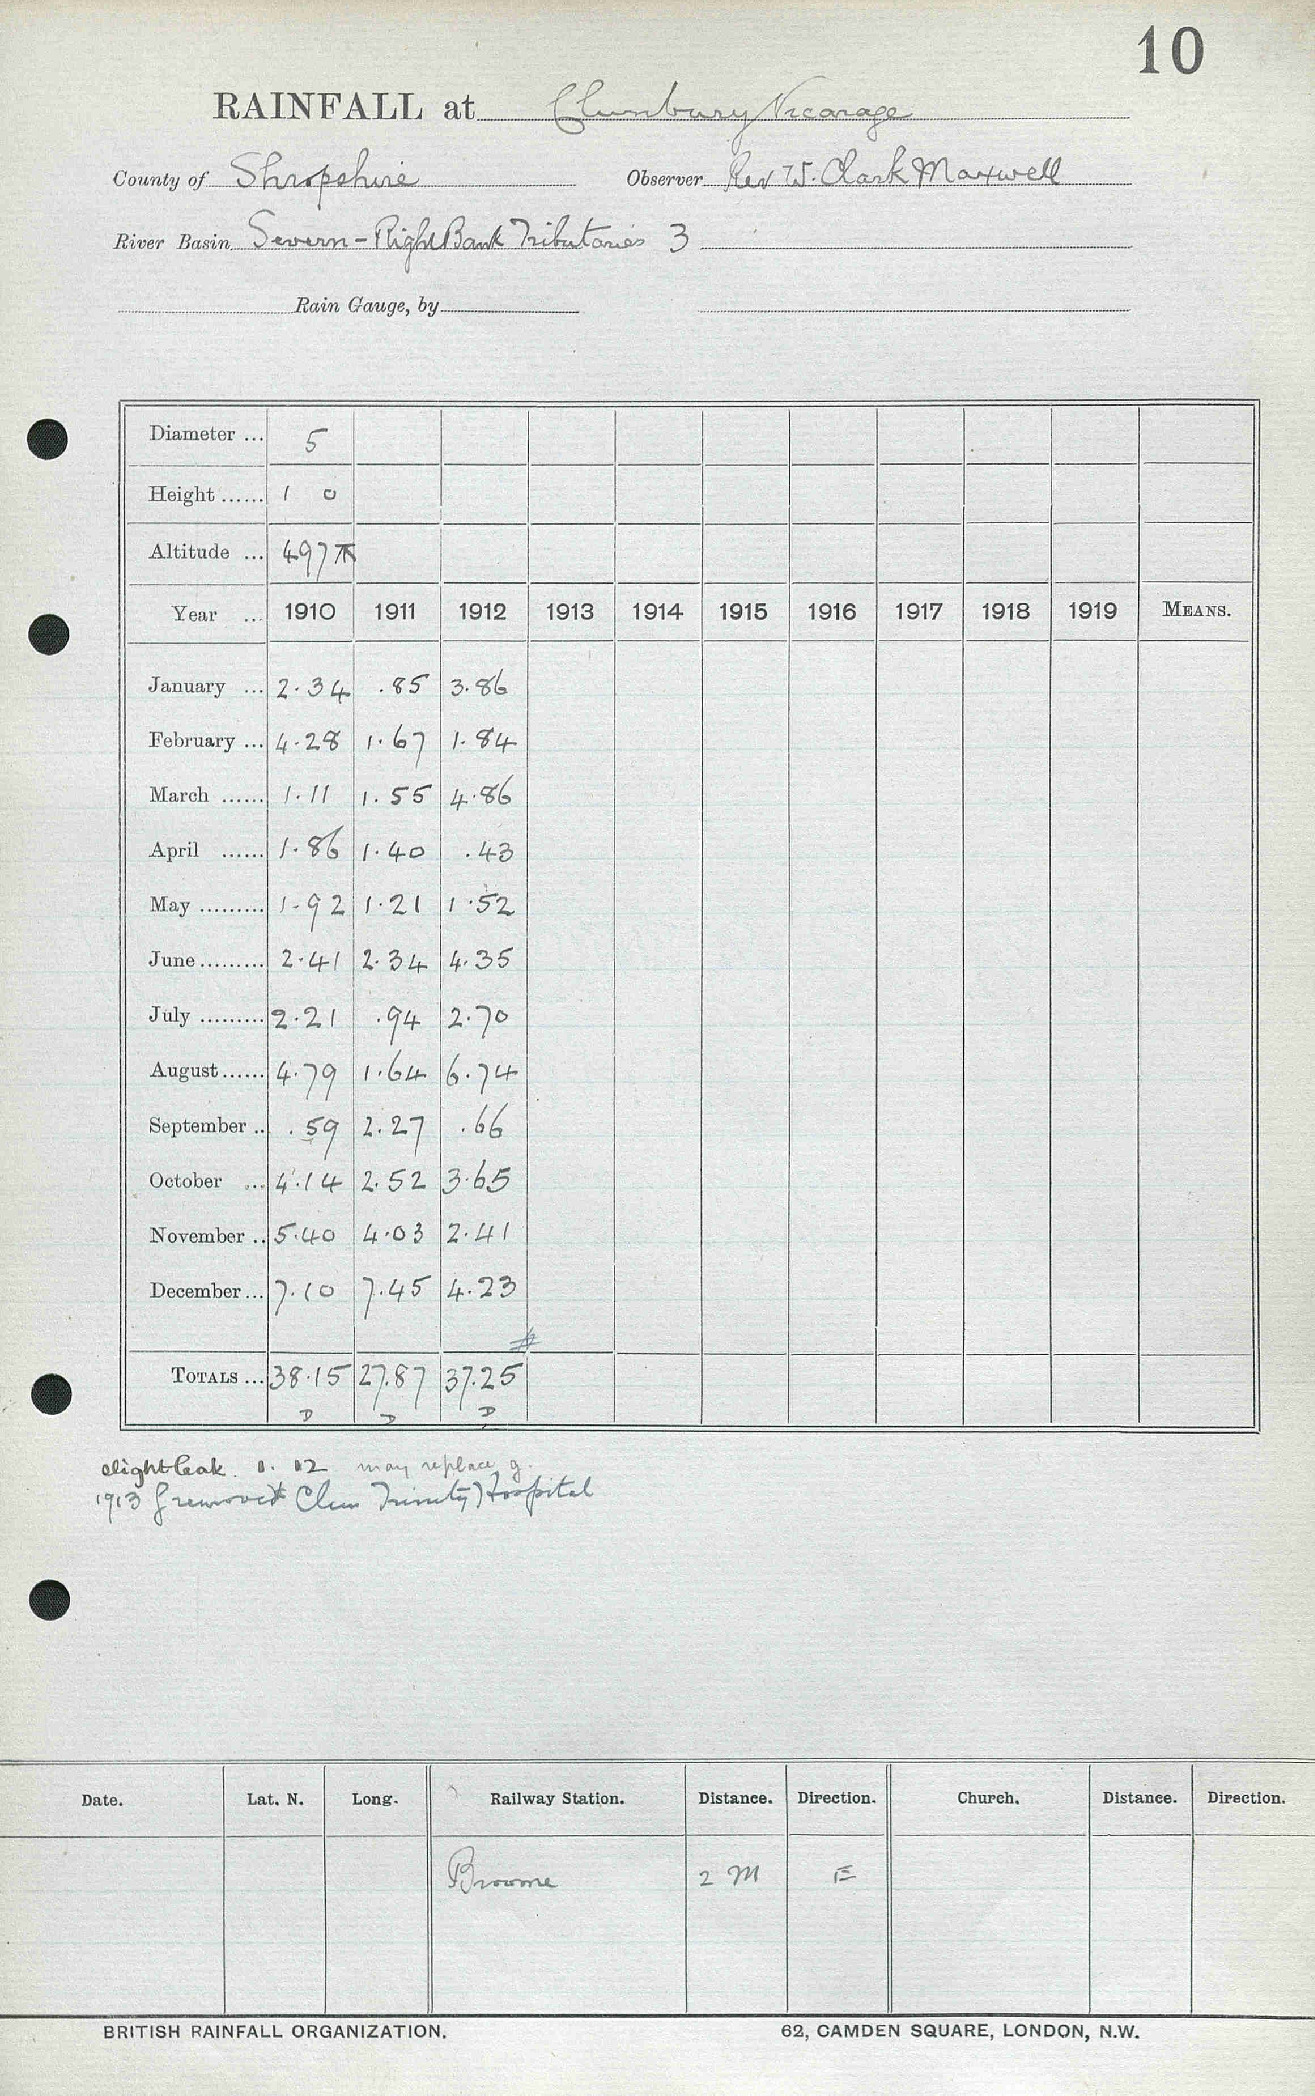 10
RAINFALL at Clunbury Vicarage
County of Shropshire Observer Rev W. Clark Maxwell
River Basin Severn - Right Bank Tributaries 3
Rain Gauge, by
Diameter ... 5
Height ...... 1 0
Altitude ... 497
Year ... 1910 1911 1912 1913 1914 1915 1916 1917 1918 1919 MEANS.
January ... 2.34 .85 3.86
February ... 4.28 1.67 1.84
March ...... 1.11 1.55 4.86
April ...... 1.86 1.40 .43
May ......... 1.92 1.21 1.52
June ......... 2.41 2.34 4.35
July ......... 2.21 .94 2.70
August ...... 4.79 1.64 6.74
September .. .59 2.27 .66
October ... 4.14 2.52 3.65
November .. 5.40 4.03 2.41
December ... 7.10 7.45 4.23
#
TOTALS ... 38.15 27.87 37.25
D D D
slight leak. 12 may replace g.
1913 g removed Clun Trinity Hospital
Date. Lat. N. Long. Railway Station. Distance. Direction. Church. Distance. Direction.
Broome 2 M E
BRITISH RAINFALL ORGANIZATION. 62, CAMDEN SQUARE, LONDON, N.W.